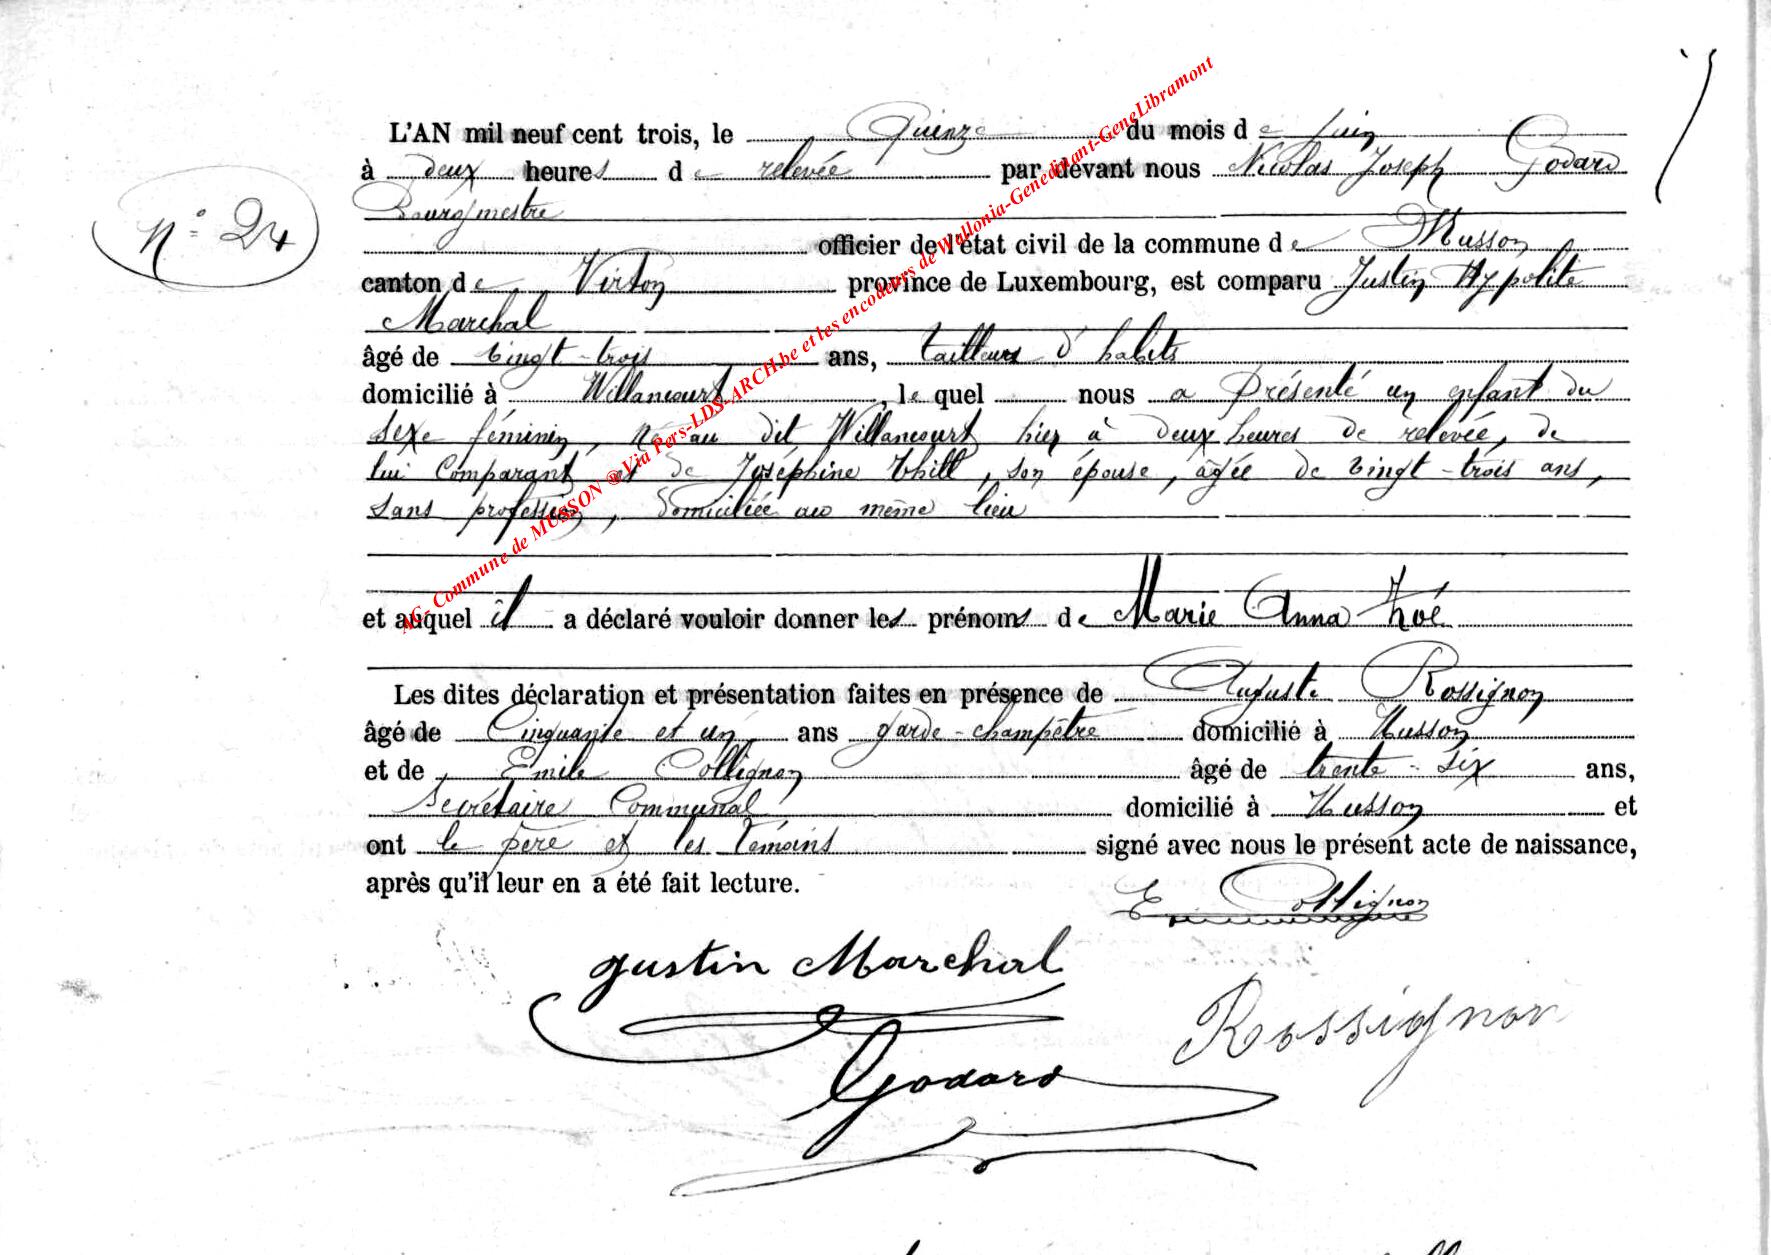 L'AN mil neuf cent trois, le Quinze du mois de juin
à deux heures de relevée par devant nous Nicolas Joseph Godard
Bourgmestre
N° 24
officier de l'état civil de la commune de Musson
canton de Virton province de Luxembourg, est comparu Justin Hypolite
Marchal
âgé de vingt-trois ans, tailleur d'habits
domicilié à Willancourt, le quel nous a présenté un enfant du
sexe féminin, né au dit Willancourt hier à deux heures de relevée, de
lui comparant et de Joséphine Thill, son épouse, âgée de vingt-trois ans,
sans profession, domiciliée au même lieu
et auquel il a déclaré vouloir donner les prénoms de Marie Anna Zoé
Les dites déclaration et présentation faites en présence de Auguste Rossignon
âgé de Cinquante et un ans garde-champêtre domicilié à Musson
et de Emile Collignon âgé de trente-six ans,
Secrétaire Communal domicilié à Musson et
ont le père et les témoins signé avec nous le présent acte de naissance,
après qu'il leur en a été fait lecture.
E. Collignon
Justin Marchal
Rossignon
Godard
AG- Commune de MUSSON @Via Pers-LDS-ARCH.be et les encodeurs de Wallonia-Genedinant-GeneLibramont